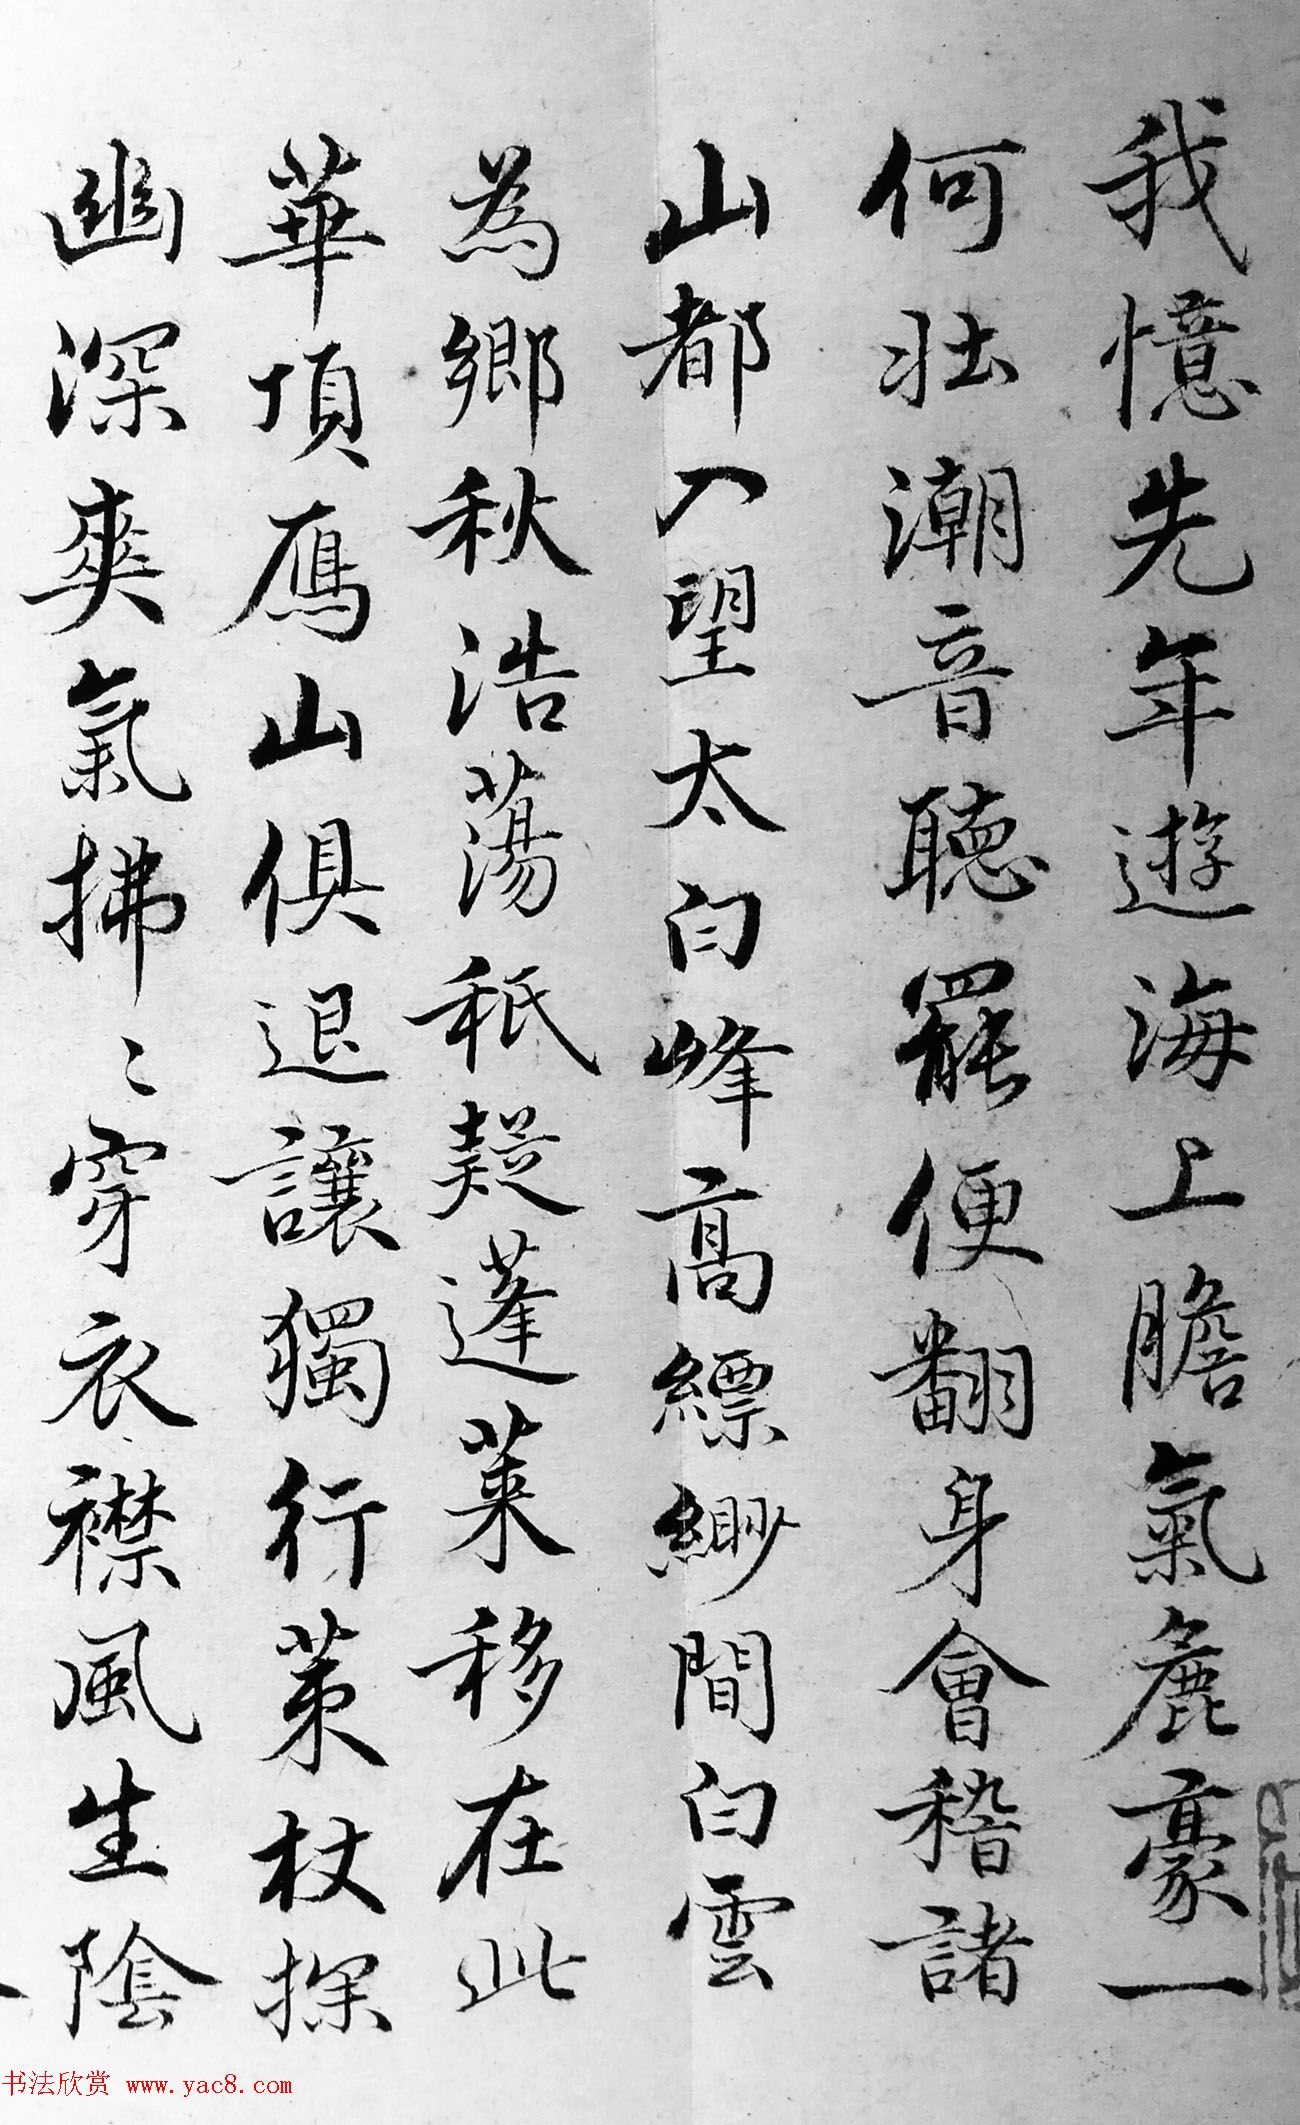 我憶先年遊海上膽氣麁豪一
何壯潮音聽罷便翻身會稽諸
山都入望太白峰高縹緲間白雲
為鄉秋浩蕩秖疑蓬萊移在此
華頂鴈山俱退讓獨行策杖探
幽深爽氣拂〻穿衣襟風生陰
书法欣赏 www.yac8.com